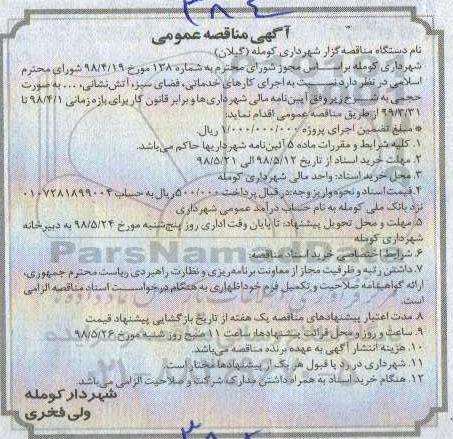 ۳۸۴
آگهی مناقصه عمومی
نام دستگاه مناقصه گزار شهرداری کومله (گیلان)
شهرداری کومله براساس مجوز شورای محترم به شماره ۱۳۸ مورخ ۹۸/۴/۱۹ شورای محترم
اسلامی در نظر دارد نسبت به اجرای کارهای خدماتی، فضای سبز، آتش نشانی، ... به صورت
حجمی به شرح زیر وفق آیین نامه مالی شهرداری ها و برابر قانون کار برای بازه زمانی ۹۸/۴/۱ تا
۹۹/۳/۳۱ از طریق مناقصه عمومی اقدام نماید:
* مبلغ تضمین اجرای پروژه ۱/۰۰۰/۰۰۰/۰۰۰ ریال
۱. کلیه شرایط و مقررات ماده ۵ آئین نامه شهرداریها حاکم می باشد.
۲. مهلت خرید اسناد از تاریخ ۹۸/۵/۱۲ الی ۹۸/۵/۲۱
۳. محل خرید اسناد: واحد مالی شهرداری کومله
۴. قیمت اسناد و نحوه واریز وجه: در قبال پرداخت ۵۰۰/۰۰۰ ریال به حساب ۰۱۰۷۲۸۱۸۹۹۰۰۴
نزد بانک ملی کومله به نام حساب درآمد عمومی شهرداری
۵. مهلت و محل تحویل پیشنهاد: تا پایان وقت اداری روز پنج شنبه مورخ ۹۸/۵/۲۴ به دبیرخانه
شهرداری کومله
ParsNamadData
۶. شرایط اختصاصی خرید اسناد مناقصه
۷. داشتن رتبه و ظرفیت مجاز از معاونت برنامه ریزی و نظارت راهبردی ریاست محترم جمهوری،
ارائه گواهینامه صلاحیت و تکمیل فرم خوداظهاری به هنگام درخواست اسناد مناقصه الزامی
است.
۸. مدت اعتبار پیشنهادهای مناقصه یک هفته از تاریخ بازگشایی پیشنهاد قیمت
۹. ساعت و روز و محل قرائت پیشنهادها: ساعت ۱۱ صبح روز شنبه مورخ ۹۸/۵/۲۶
۱۰. هزینه انتشار آگهی به عهده برنده مناقصه می باشد.
۱۱. شهرداری در رد یا قبول هر یک از پیشنهادها مختار است.
۱۲. هنگام خرید اسناد به همراه داشتن مدارک شرکت و صلاحیت الزامی می باشد.
شهردار کومله
ولی فخری